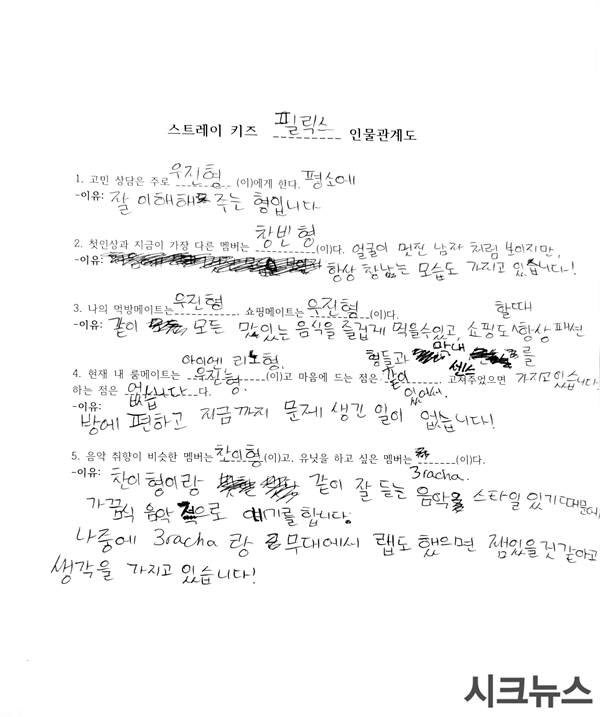 스트레이 키즈 필릭스 인물관계도
1. 고민 상담은 주로 우진형 (이)에게 한다. 평소에
-이유: 잘 이해해 주는 형입니다
2. 첫인상과 지금이 가장 다른 멤버는 창빈형 (이)다. 얼굴이 멋진 남자 처럼 보이지만,
-이유: 항상 장난는 모습도 가지고 있습니다!
3. 나의 먹방메이트는 우진형, 쇼핑메이트는 우진형 (이)다. 할때
-이유: 같이 모든 맛있는 음식을 즐겁게 먹을수있고, 쇼핑도 항상 패션
아이에 리노형, 형들과 막내 를
4. 현재 내 룸메이트는 우진형 (이)고 마음에 드는 점은 같이 있어서. 고쳐주었으면 센스 가지고있습니다
하는 점은 없습니다 다.
-이유: 방에 편하고 지금까지 문제 생긴 일이 없습니다!
5. 음악 취향이 비슷한 멤버는 찬이형 (이)고, 유닛을 하고 싶은 멤버는 3racha. (이)다.
-이유: 찬이형이랑 같이 잘 듣는 음악 스타일 있기때문에
가끔식 음악 으로 얘기를 합니다.
나중에 3racha 랑 무대에서 랩도 했으면 잼있을것같아고
생각을 가지고 있습니다!
시크뉴스